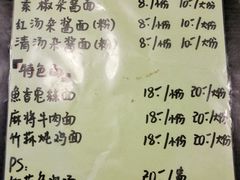 椒酱面 8-/小份 10-/大份
红汤杂酱面(粉) 8-/小份 10-/大份
清汤杂酱面(粉) 8-/小份 10-/大份
『特色面』
鱼香 面 18-/小份 20-/大份
麻将牛肉面 18-/小份 20-/大份
竹荪炖鸡面 18-/小份 20-/大份
PS:
20-/